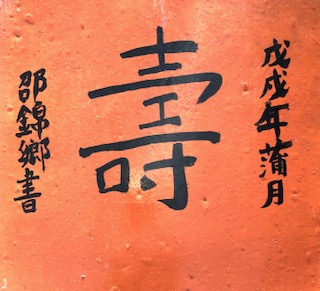 戊戌年蒲月
壽
邵錦鄉書